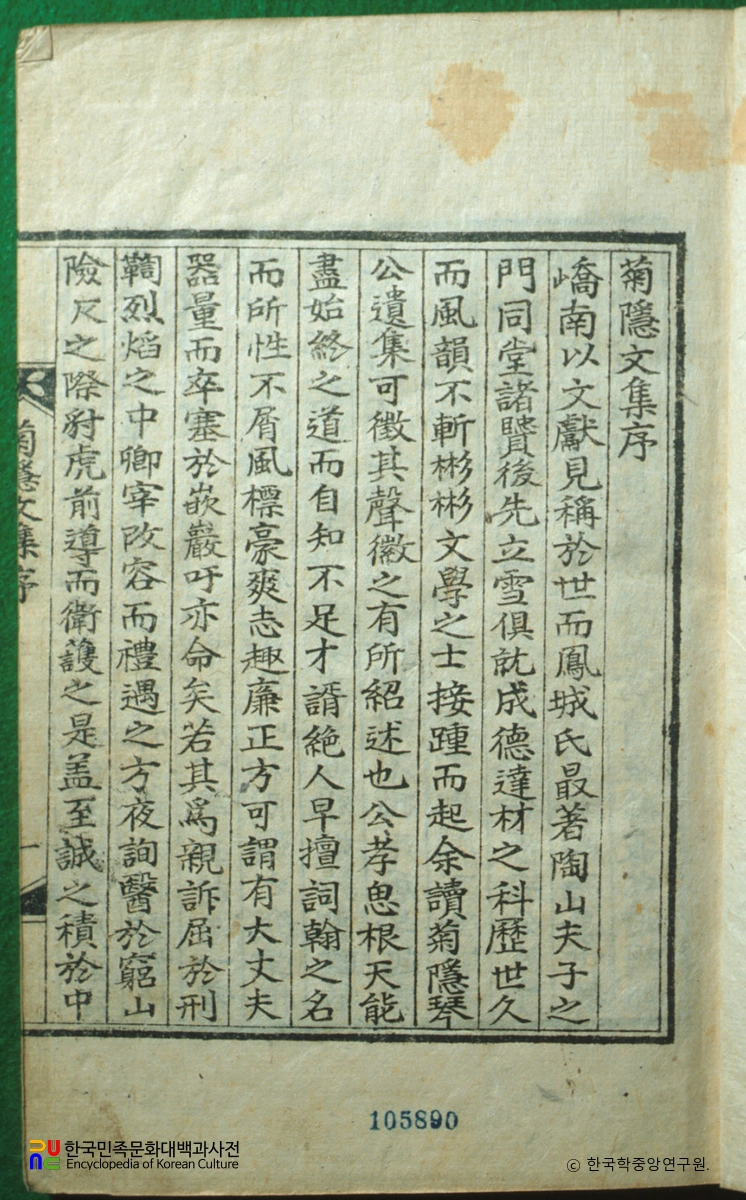 菊隱文集序
嶠南以文獻見稱於世而鳳城氏最著陶山夫子之
門同堂諸賢後先立雪俱就成德達材之科歷世久
而風韻不斬彬彬文學之士接踵而起余讀菊隱琴
公遺集可徵其聲徽之有所紹述也公孝思根天能
盡始終之道而自知不足才諝絶人早擅詞翰之名
而所性不屑風標豪爽志趣廉正方可謂有大丈夫
器量而卒塞於嵌巖吁亦命矣若其爲親訴屈於刑
鞫烈焰之中卿宰改容而禮遇之方夜詢醫於窮山
險尺之際豺虎前導而衛護之是盖至誠之積於中
菊隱文集序
一
105890
한국민족문화대백과사전
Encyclopedia of Korean Culture
© 한국학중앙연구원.